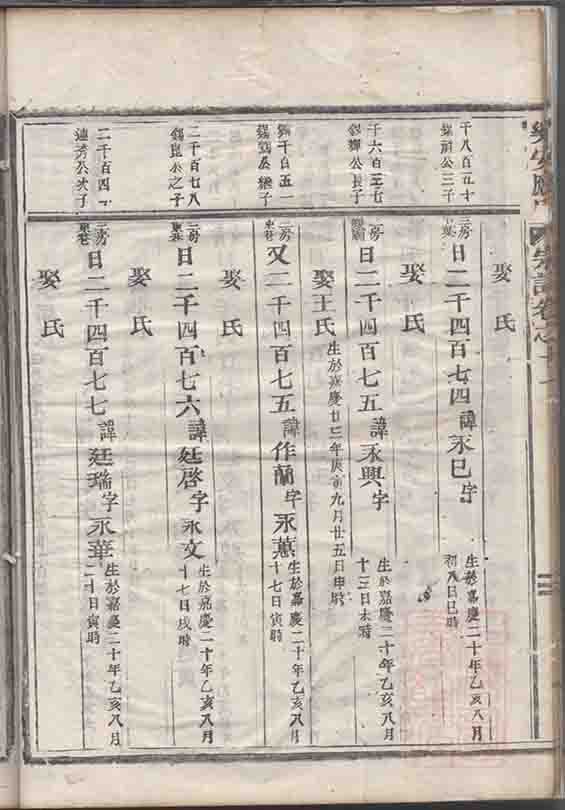 宗譜卷之十一
千八百五十
三子
三房
日二千四百七四諱永巳字
生於嘉慶二十年乙亥八月
初八日巳時
娶 氏
千六百三七
錫輝公長子
二房
日二千四百七五諱永興字
生於嘉慶二十年乙亥八月
十三日未時
娶 氏
千百五一
公繼子
二房
東巷
又二千四百七五諱作蘭字永蕙
生於嘉慶二十年乙亥八月
十七日寅時
娶王氏
生於嘉慶廿三年戊寅九月廿五日申時
二千百七八
錫崑公之子
三房
東巷
日二千四百七六諱廷啓字永文
生於嘉慶二十年乙亥八月
十七日戌時
娶 氏
二千百四
連芳公次子
三房
東巷
日二千四百七七諱廷瑞字永華
生於嘉慶二十年乙亥八月
二十日寅時
娶 氏